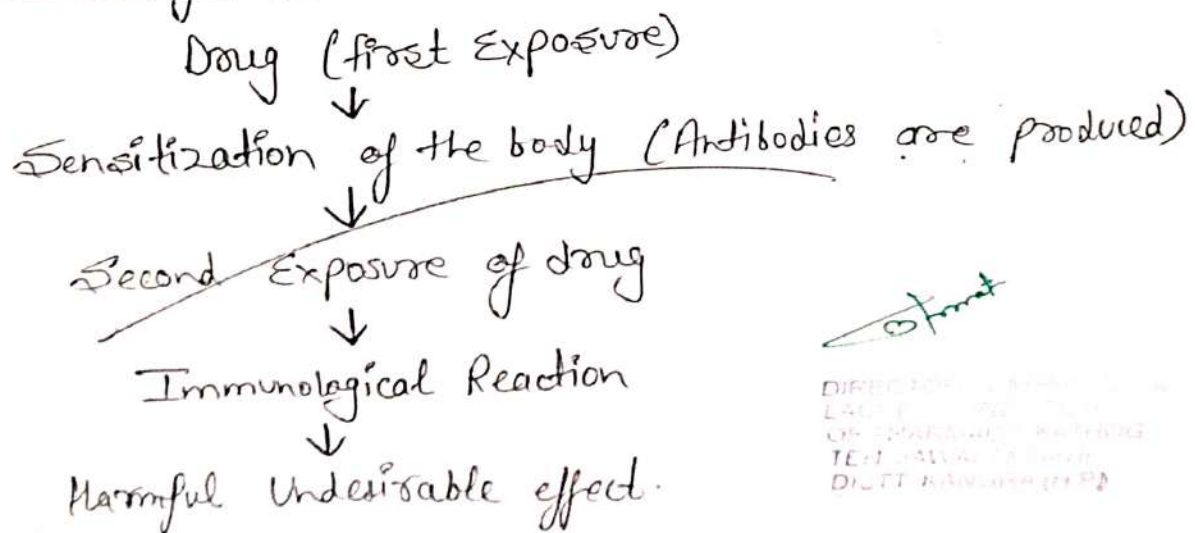 Drug (first Exposure)
↓
Sensitization of the body (Antibodies are produced)
↓
Second Exposure of drug
↓
Immunological Reaction
↓
Harmful Undesirable effect.